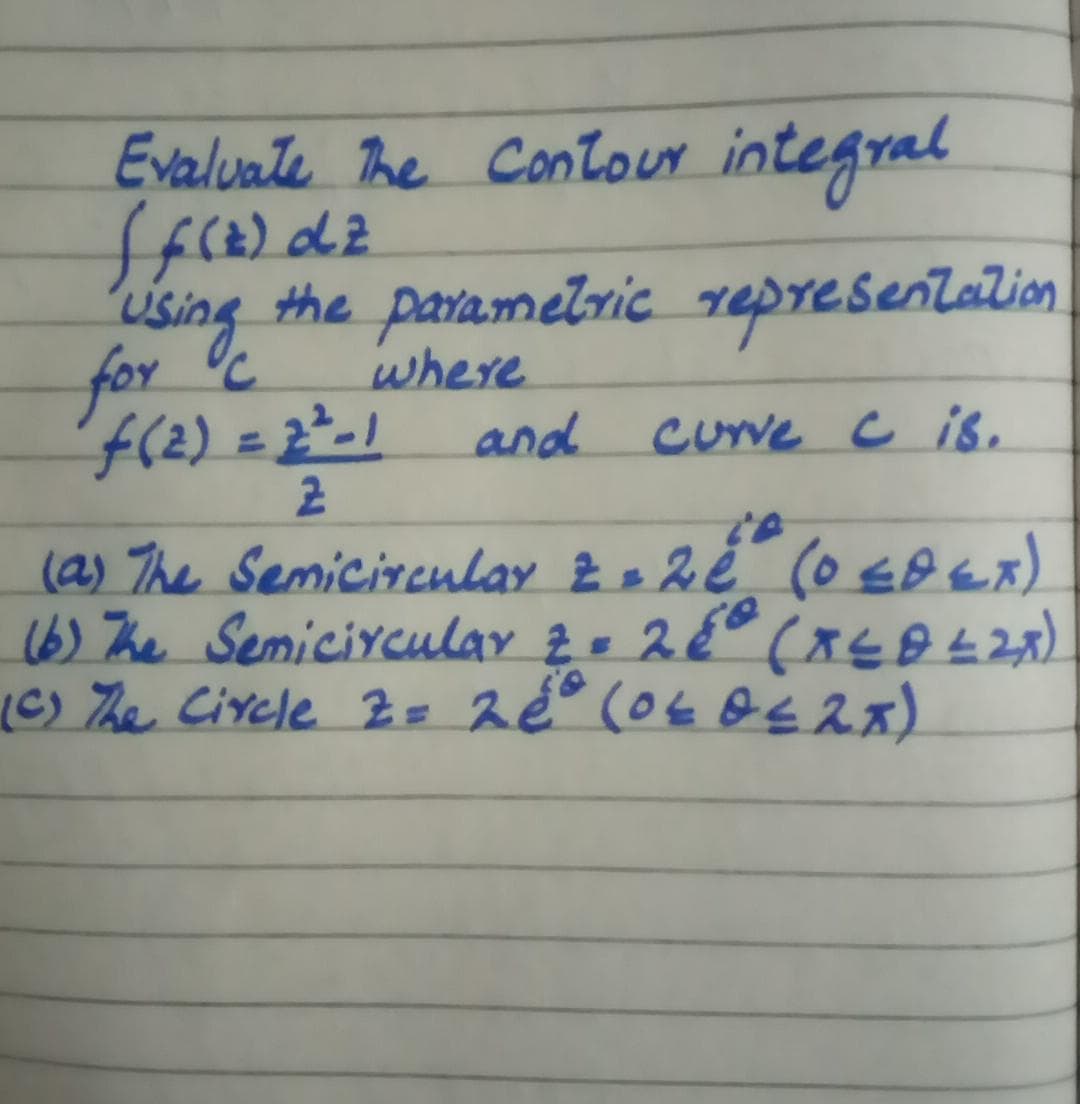 Evaluate The Contour integral
∫ f(z) dz
using the parametric representation
for C where
f(z) = z²-1 and curve C is.
z
(a) The Semicircular z = 2e^iθ (0 ≤ θ ≤ π)
(b) The Semicircular z = 2e^iθ (π ≤ θ ≤ 2π)
(C) The Circle z = 2e^iθ (0 ≤ θ ≤ 2π)